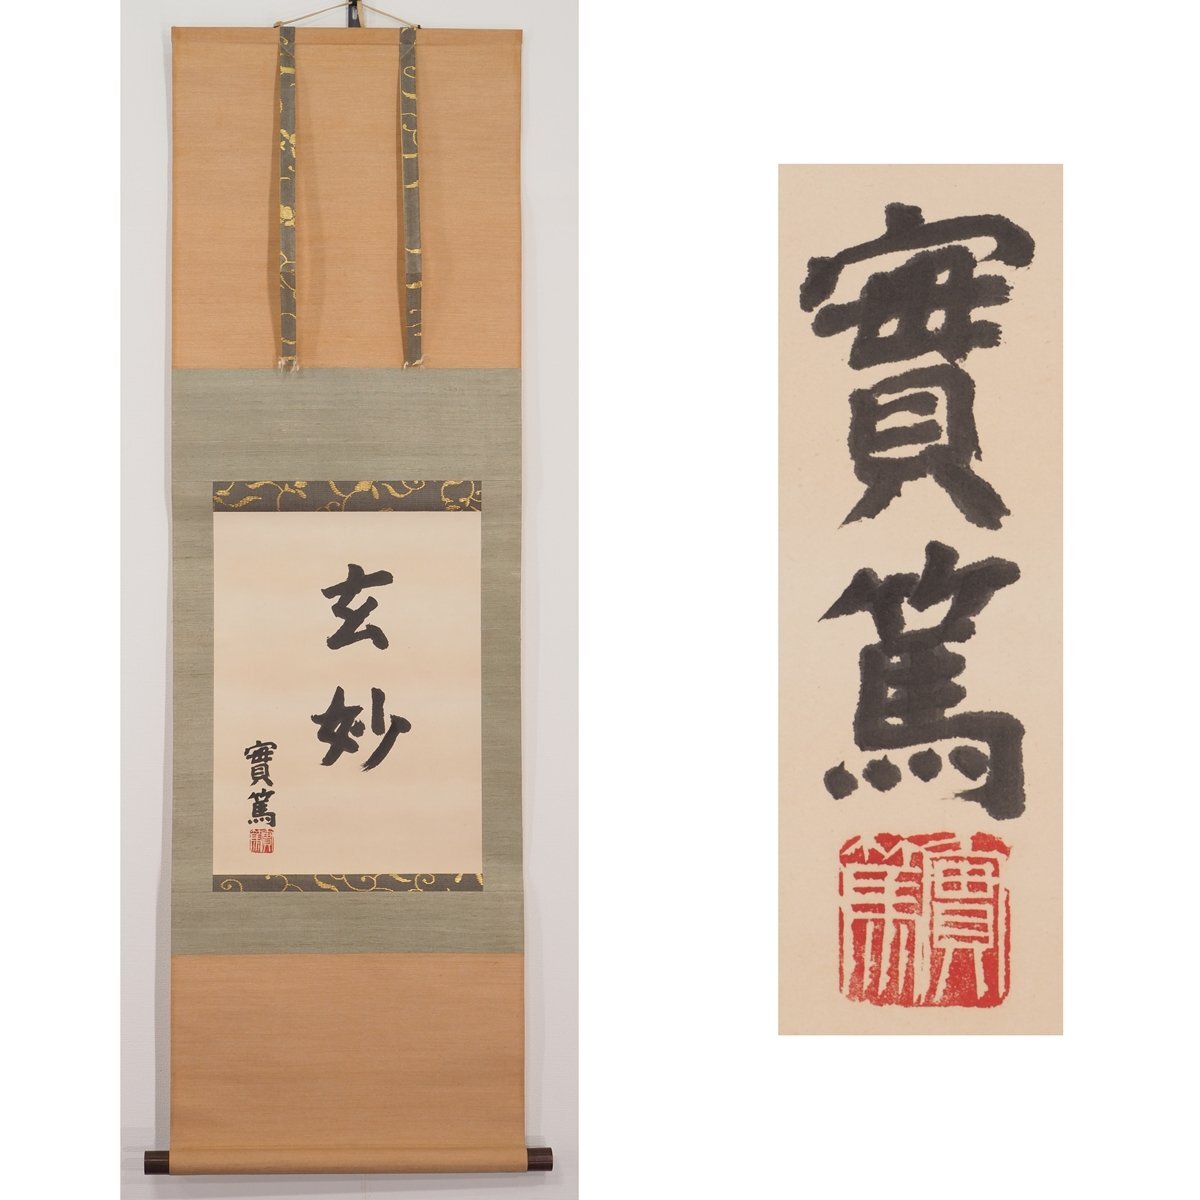 玄妙
實篤
實篤
實篤
實篤